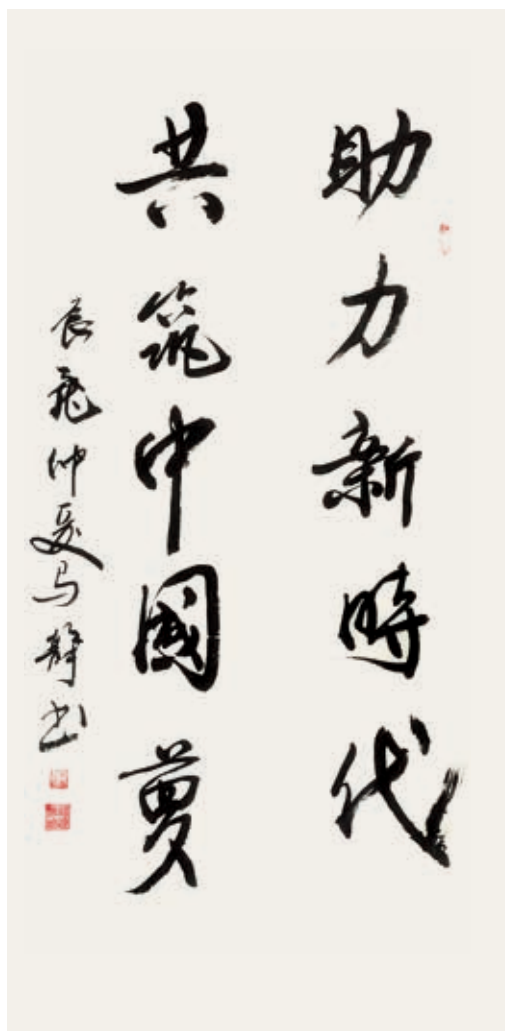 助力新時代
共筑中國夢
仲夏马静书